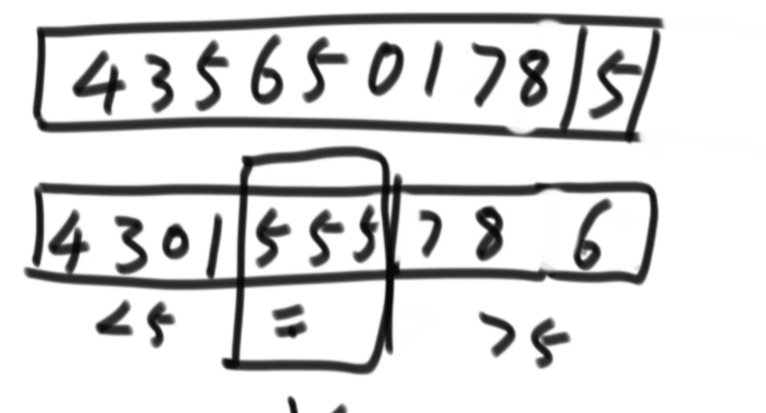 4 3 5 6 5 0 1 7 8 5
4 3 0 1 5 5 5 7 8 6
<5 = >5